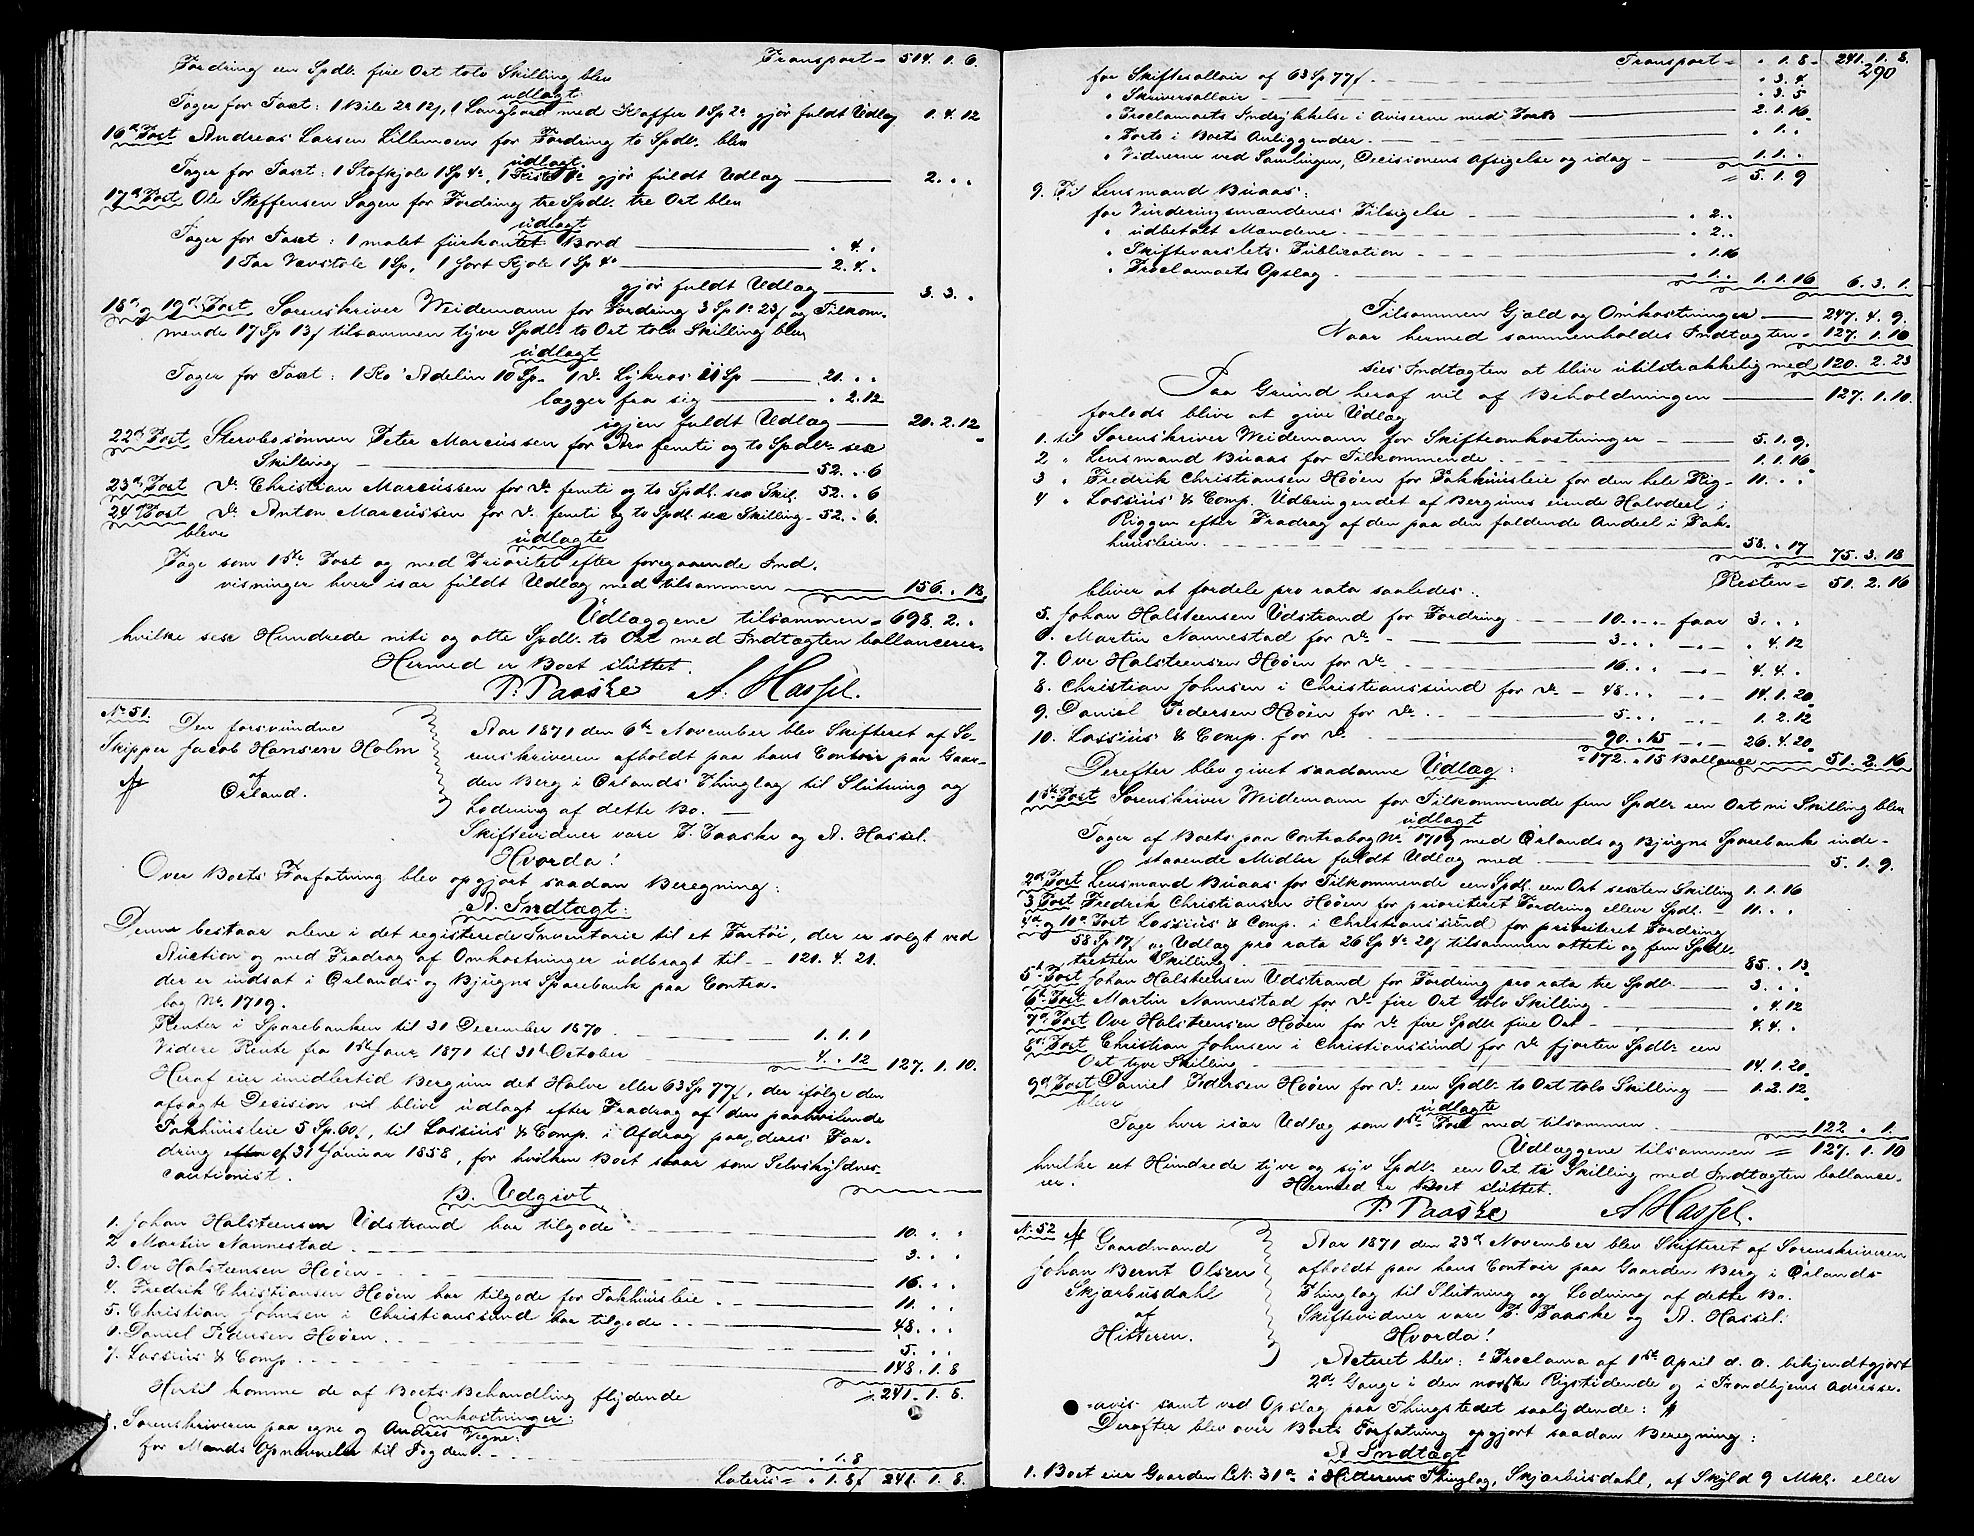 Transport = 514. 1. 6.
Fordring een Spdlr. fire Ort tolv Skilling blev
udlagt
Tager for Taxt: 1 Bile 2# 12/, 1 Langbord med Skuffer 1 Sp 2# gjør fuldt Udlæg 1. 4. 12
16de Post Andreas Larsen Lillemoen for Fordring to Spdlr. blev
udlagt.
Tager for Taxt: 1 Stofkjole 1 Sp 4#, 1 Kiste 1# gjør fuldt Udlæg — 2. . .
17de Post Ole Steffensen Sagen for Fordring tre Spdlr. tre Ort blev
udlagt
Tager for Taxt: 1 malet fiirkantet Bord — . 4. .
1 Par Vævstole 1 Sp, 1 sort Kjole 1 Sp 4# — 2. 4. .
gjør fuldt Udlæg — 3. 3. .
18de og 19de Post Sorenskriver Weidemann for Fordring 3 Sp 1# 23/ og Tilkom-
mende 17 Sp 13/ tilsammen tyve Spdlr. to Ort tolv Skilling blev
udlagt
Tager for Taxt: 1 Ko Adelin 10 Sp. 1 do Lykros 11 Sp — 21. . .
lægger fra sig — . 2. 12
igjen fuldt Udlæg — 20. 2. 12
22de Post Stervbosønnen Peter Marcussen for Arv femti og to Spdlr. sex
Skilling — 52. . 6
23de Post do Christian Marcussen for do femti og to Spdl. sex Skil. 52. . 6
24de Post do Anton Marcussen for do femti og to Spdl. sex Skilling - 52. . 6.
bleve udlagte
Tage som 1ste Post og med Prioritet efter foregaaende Ind-
visninger hver især fuldt Udlæg med tilsammen — 156. . 18.
Udlæggene tilsammen = 698. 2. .
hvilke sex Hundrede niti og otte Spdl. to Ort med Indtægten ballancerer.
Hermed er Boet sluttet.
P. Paaske A. Hassel.
No 51.
Den forsvundne
Skipper Jacob Hansen Holm
af
Ørland.
Aar 1871 den 6te November blev Skifteret af So-
renskriveren afholdt paa hans Contoir paa Gaar-
den Berg i Ørlands Thinglag til Slutning og
Lodning af dette Bo. —
Skiftevidner vare P. Paaske og A. Hassel.
Hvorda!
Over Boets Forfatning blev opgjort saadan Beregning:
A. Indtægt:
Denne bestaar alene i det registerede Inventarie til et Fartøi, der er solgt ved
Auction og med Fradrag af Omkostninger udbragt til - - 121. 4. 21.
der er indsat i Ørlands og Bjugns Sparebank paa Contra-
bog No. 1719.
Renter i Sparebanken til 31 December 1870 — 1. 1. 1
Videre Rente fra 1ste Januar 1871 til 31te October — 4. . 12 127. 1. 10.
Heraf eier imidlertid Bergum det Halve eller 63 Sp 77/, der ifølge den
afsagte Decision vil blive udlagt efter Fradrag af den paahvilende
Pakhuusleie 5 Sp. 60/, til Lossius & Comp. i Afdrag paa deres For-
dring af 31 Januar 1858, for hvilken Boet staar som Selvskyldner
cautionist.
B. Udgivt
1. Johan Halsteensen Udstrand har tilgode — 10. . .
2 Martin Nannestad. — 3. . .
3. Ove Halsteensen Høøen — 16. . .
4. Fredrik Christiansen Høøen har tilgode for Pakhuusleie — 11. . .
5. Christian Johnsen i Christianssund har tilgode — 48. . .
6. Daniel Pedersen Høøen — 5. . .
7. Lossius & Comp — 148. 1. 8
= 241. 1. 8.
Hertil komme de af Boets Behandling flydende
Omkostninger:
8. Sorenskriveren paa egne og Andres Vegne:
for Mands Opnævnelse til Fogden — . 1. 8
Lateris = . 1. 8/ 241. 1. 8.
290
Transport = . 1. 8 - 241. 1. 8.
for Skiftesallair af 63 Sp 77/ — . 3. 4.
" Skriversallair — . 3. 5
" Proclamaets Indrykkelse i Aviserne med Porto — 2. 1. 16.
" Porto i Boets Anliggender — . 1. .
" Vidnerne ved Samlingen, Decisionens Afsigelse og idag — 1. 1. .
= 5. 1. 9
9. Til Lensmand Buaas:
for Vurderingsmændenes Tilsigelse — . 2. .
" udbetalt Mændene — . 2. .
" Skiftevarslets Publication — . 1. 16
" Proclamaets Opslag — . 1. . 1. 1. 16 6. 3. 1.
Tilsammen Gjæld og Omkostninger — 247. 4. 9.
Naar hermed sammenholdes Indtægten = 127. 1. 10
sees Indtægten at blive utilstrækkelig med 120. 2. 23
Paa Grund heraf vil af Beholdningen — 127. 1. 10.
forlods blive at give Udlæg
1. til Sorenskriver Weidemann for Skifteomkostninger — 5. 1. 9.
2 " Lensmand Buaas for Tilkommende — 1. 1. 16.
3 " Fredrik Christiansen Høøen for Pakhuusleie for den hele Rig- 11. . .
4 " Lossius & Comp. Udbringendet af Bergums eiende Halvdeel i
Riggen efter Fradrag af den paa den faldende Andeel i Pak-
huusleien — 58. . 17 75. 3. 18
Resten = 51. 2. 16
bliver at fordele pro rata saaledes:
5. Johan Halsteensen Udstrand for Fordring — 10. . . faar 3. . .
6. Martin Nannestad for do — 3. . . —"— . 4. 12
7. Ove Halsteensen Høøen for do — 16. . . —"— 4. 4. .
8. Christian Johnsen i Christianssund for do — 48. . . —"— 14. 1. 20.
9. Daniel Pedersen Høøen for do — 5. . . —"— 1. 2. 12
10. Lossius & Comp. for do — 90. . 15 —"— 26. 4. 20.
= 172. . 15 Ballance — 51. 2. 16
Derefter blev givet saadanne Udlæg:
1ste Post Sorenskriver Weidemann for Tilkommende fem Spdlr een Ort ni Skilling blev
udlagt
Tager af Boets paa Contrabog No. 1719 med Ørlands og Bjugns Sparebank inde-
staaende Midler fuldt Udlæg med — 5. 1. 9.
2de Post Lensmand Buaas for Tilkommende een Spdl. een Ort sexten Skilling 1. 1. 16
3 Post Fredrik Christiansen Høøen for prioriteret Fordring elleve Spdl. — 11. . .
4de og 10de Post Lossius & Comp. i Christianssund for prioriteret Fordring
58 Sp 17/ og Udlæg pro rata 26 Sp 4# 20/ tilsammen otteti og fem Spdlr.
tretten Skilling — 85. . 13.
5te Post Johan Halsteensen Udstrand for Fordring pro rata tre Spdlr — 3. . .
6te Post Martin Nannestad for do fire Ort tolv Skilling — . 4. 12
7de Post Ove Halsteensen Høøen for do fire Spdlr fire Ort — 4. 4. .
8de Post Christian Johnsen i Christianssund for do fjorten Spdlr. een
Ort tyve Skilling — 14. 1. 20.
9de Post Daniel Pedersen Høøen for do een Spdlr. to Ort tolv Skilling — 1. 2. 12.
bleve udlagte
Tage hver især Udlæg som 1ste Post med tilsammen — 122. . 1.
Udlæggene tilsammen = 127. 1. 10
hvilke eet Hundrede tyve og syv Spdlr. een Ort ti Skilling med Indtægten ballance-
rer. Hermed er Boet sluttet.
P. Paaske A. Hassel.
No. 52
Gaardmand
Johan Bernt Olsen
Skjærbusdahl
af
Hitteren.
Aar 1871 den 23de November blev Skifteret af Sorenskriveren
afholdt paa hans Contoir paa Gaarden Berg i Ørlands
Thinglag til Slutning og Lodning af dette Bo.
Skiftevidner vare P. Paaske og A. Hassel.
Hvorda!
Acteret blev: Proclama af 1ste April d. A. bekjendtgjort
2de Gange i den norske Rigstidende og i Trondhjems Adresse-
avis samt ved Opslag paa Thingstedet saalydende:
Derefter blev over Boets Forfatning opgjort saadan Beregning:
A Indtægt
1. Boet eier Gaarden L.N. 31a i Hitterens Thinglag, Skjærbusdahl, af Skyld 9 Mkl. eller